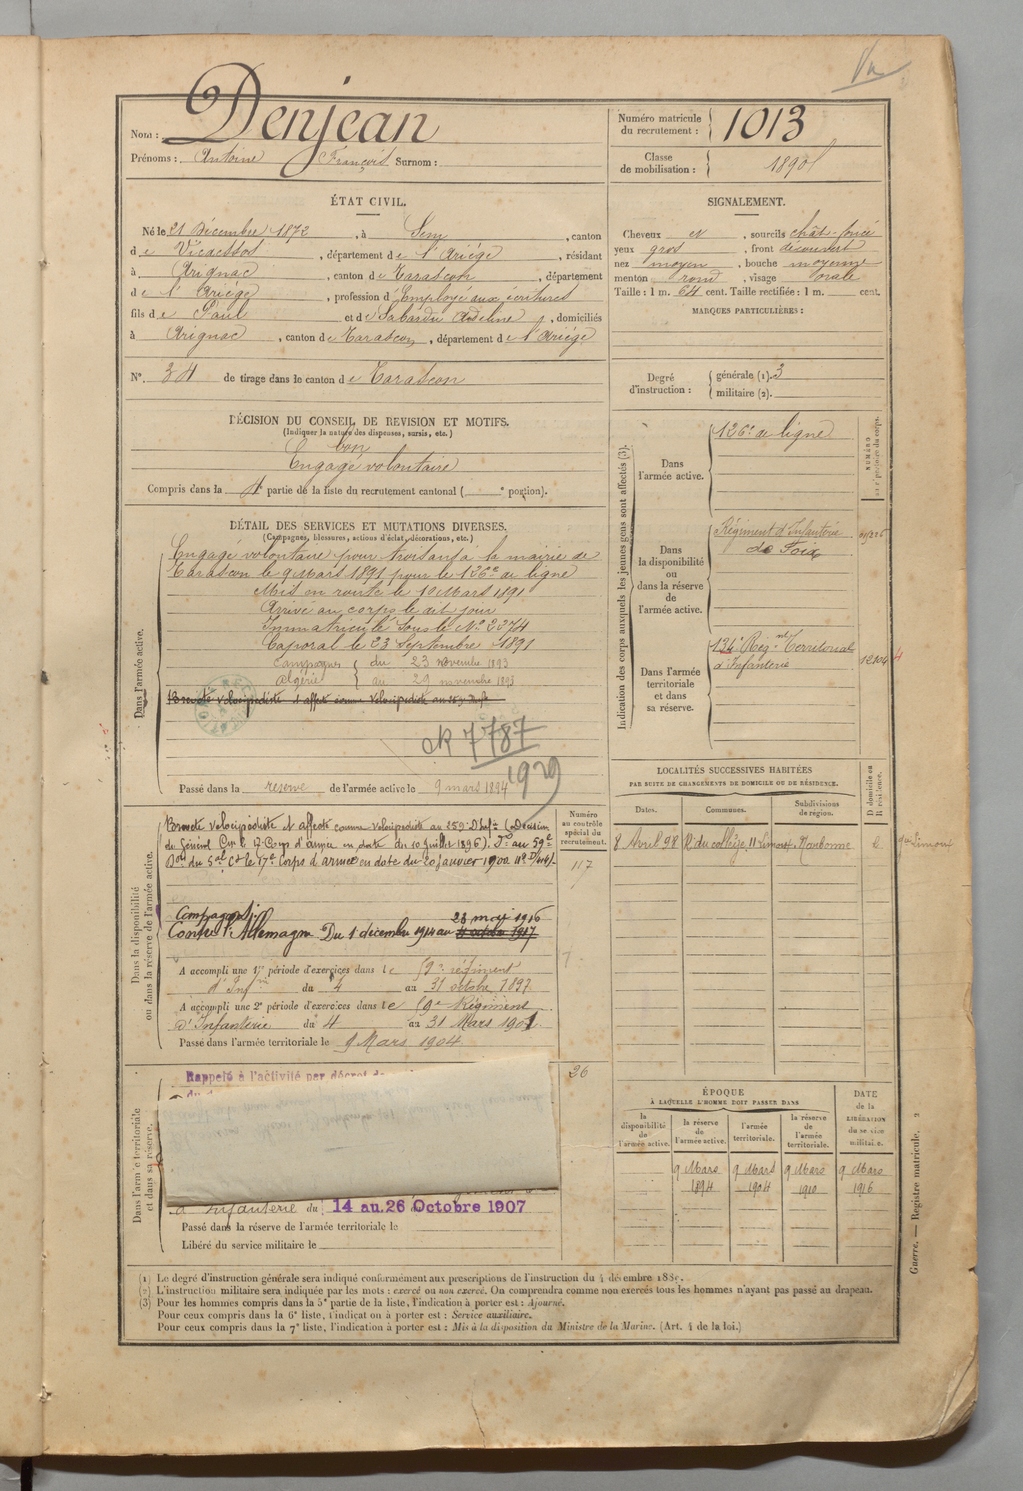 Nom : Denjean
Prénoms : Antoine François Surnom :
Numéro matricule du recrutement : 1013
Classe de mobilisation : 1890
ÉTAT CIVIL.
Né le 21 Décembre 1872, à Sem, canton
de Vicdessos, département de l'Ariège, résidant
à Arignac, canton de Tarascon, département
de l'Ariège, profession d'Employé aux écritures
fils de Paul et de Sabardu Adeline, domiciliés
à Arignac, canton de Tarascon, département de l'Ariège
N° 34 de tirage dans le canton de Tarascon
DÉCISION DU CONSEIL DE REVISION ET MOTIFS.
(Indiquer la nature des dispenses, sursis, etc.)
bon
Engagé volontaire
Compris dans la 4 partie de la liste du recrutement cantonal ( e portion).
SIGNALEMENT.
Cheveux et, sourcils chât. foncé
yeux gros, front découvert
nez moyen, bouche moyenne
menton rond, visage ovale
Taille : 1 m. 64 cent. Taille rectifiée : 1 m. cent.
MARQUES PARTICULIÈRES :
Degré d'instruction : générale (1). 3
militaire (2).
DÉTAIL DES SERVICES ET MUTATIONS DIVERSES.
(Campagnes, blessures, actions d'éclat, décorations, etc.)
Dans l'armée active.
Engagé volontaire pour trois ans à la mairie de
Tarascon le 9 Mars 1891 pour le 126e de ligne
Mis en route le 10 Mars 1891
Arrivé au corps le dit jour
Immatriculé sous le N° 2274
Caporal le 23 Septembre 1891
Campagnes du 23 novembre 1893
Algérie au 29 novembre 1893
Breveté vélocipédiste et affecté comme vélocipédiste au 259 Inft
CR 7787
1929
Passé dans la réserve de l'armée active le 9 mars 1894
Indication des corps auxquels les jeunes gens sont affectés (3).
NUMÉRO
Dans l'armée active.
126e de ligne
Dans la disponibilité ou dans la réserve de l'armée active.
Régiment d'Infanterie
de Foix
Dans l'armée territoriale et dans sa réserve.
134e Régnt Territorial
d'Infanterie
12104
LOCALITÉS SUCCESSIVES HABITÉES
PAR SUITE DE CHANGEMENTS DE DOMICILE OU DE RÉSIDENCE.
Dates. Communes. Subdivisions de région. Domicile ou Résidence.
8 Avril 98 R. du collège, 11 Limoux Narbonne
Numéro au contrôle spécial du recrutement.
117
Dans la disponibilité ou dans la réserve de l'armée active.
Breveté vélocipédiste et affecté comme vélocipédiste au 259 D'Infie (Décision
du Général Cmt le 17 Corps d'armée en date du 10 juillet 1896). Do au 59e
Don du 5e Ct le 17e Corps d'armée en date du 20 janvier 1900
Campagnes :
23 mai 1916
Contre l'Allemagne Du 1 décembre 1914 au
A accompli une 1re période d'exercices dans le 59e régiment
d'Infie du 4 au 31 octobre 1897
A accompli une 2e période d'exercices dans le 59e Régiment
d'Infanterie du 4 au 31 Mars 1901
Passé dans l'armée territoriale le 9 Mars 1904
Dans l'armée territoriale et dans sa réserve.
Rappelé à l'activité par décret
26
d'Infanterie du 14 au 26 Octobre 1907
Passé dans la réserve de l'armée territoriale le
Libéré du service militaire le
ÉPOQUE
À LAQUELLE L'HOMME DOIT PASSER DANS
DATE de la LIBÉRATION du service militaire.
la disponibilité de l'armée active. la réserve de l'armée active. l'armée territoriale. la réserve de l'armée territoriale.
9 Mars 9 Mars 9 Mars 9 Mars
1894 1904 1910 1916
Guerre. — Registre matricule. 2
(1) Le degré d'instruction générale sera indiqué conformément aux prescriptions de l'instruction du 4 décembre 1889.
(2) L'instruction militaire sera indiquée par les mots : exercé ou non exercé. On comprendra comme non exercés tous les hommes n'ayant pas passé au drapeau.
(3) Pour les hommes compris dans la 5e partie de la liste, l'indication à porter est : Ajourné.
Pour ceux compris dans la 6e liste, l'indication à porter est : Service auxiliaire.
Pour ceux compris dans la 7e liste, l'indication à porter est : Mis à la disposition du Ministre de la Marine. (Art. 4 de la loi.)